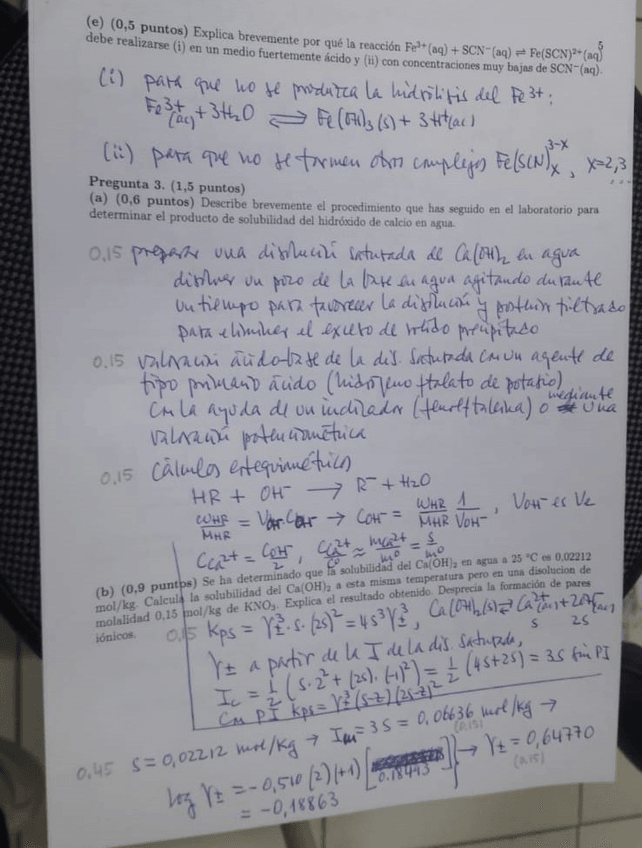 (e) (0,5 puntos) Explica brevemente por qué la reacción Fe³⁺(aq) + SCN⁻(aq) ⇌ Fe(SCN)²⁺(aq)
5
debe realizarse (i) en un medio fuertemente ácido y (ii) con concentraciones muy bajas de SCN⁻(aq).
(i) para que no se produzca la hidrólisis del Fe³⁺:
Fe³⁺(ac) + 3H₂O ⇌ Fe(OH)₃(s) + 3H⁺(ac)
(ii) para que no se formen otros complejos Fe(SCN)ₓ³⁻ˣ, x=2,3...
Pregunta 3. (1,5 puntos)
(a) (0,6 puntos) Describe brevemente el procedimiento que has seguido en el laboratorio para
determinar el producto de solubilidad del hidróxido de calcio en agua.
0,15 preparar una disolución saturada de Ca(OH)₂ en agua
disolver un poco de la base en agua agitando durante
un tiempo para favorecer la disolución y posterior filtrado
para eliminar el exceso de sólido precipitado
0,15 valoración ácido-base de la dis. saturada con un agente de
tipo primario ácido (hidrógeno ftalato de potasio)
con la ayuda de un indicador (fenolftaleina) o mediante una
valoración potenciométrica
0,15 Cálculos estequiométricos
HR + OH⁻ → R⁻ + H₂O
ωHR/MHR = VOH⁻ COH⁻ → COH⁻ = ωHR/MHR 1/VOH⁻, VOH⁻ es Ve
CCa²⁺ = COH⁻/2, CCa²⁺/C⁰ ≈ mCa²⁺/m⁰ = s/m⁰
(b) (0,9 puntos) Se ha determinado que la solubilidad del Ca(OH)₂ en agua a 25 °C es 0,02212
mol/kg. Calcula la solubilidad del Ca(OH)₂ a esta misma temperatura pero en una disolucion de
molalidad 0,15 mol/kg de KNO₃. Explica el resultado obtenido. Desprecia la formación de pares
iónicos.
0,15 Kps = γ±³ · s · (2s)² = 4s³γ±³, Ca(OH)₂(s) ⇌ Ca²⁺(ac) + 2OH⁻(ac)
s 2s
γ± a partir de la I de la dis. saturada,
Ic = 1/2 (s·2² + (2s)·(-1)²) = 1/2 (4s+2s) = 3s sin PI
Con PI Kps = γ±³ (s-z)(2s-z)²
0,45 s = 0,02212 mol/kg → Im = 3s = 0,06636 mol/kg →
(0,15)
log γ± = -0,510 (2)(+1) [0.18493] → γ± = 0,64770
(0,15)
= -0,18863